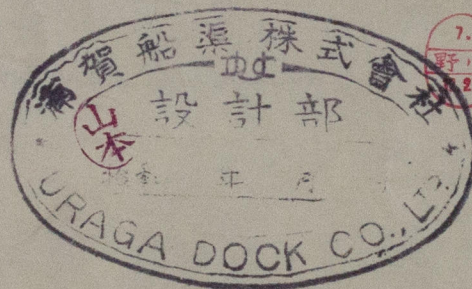 浦賀船渠株式會社
設計部
山本
年 月
URAGA DOCK CO., LTD.
7.
野
2